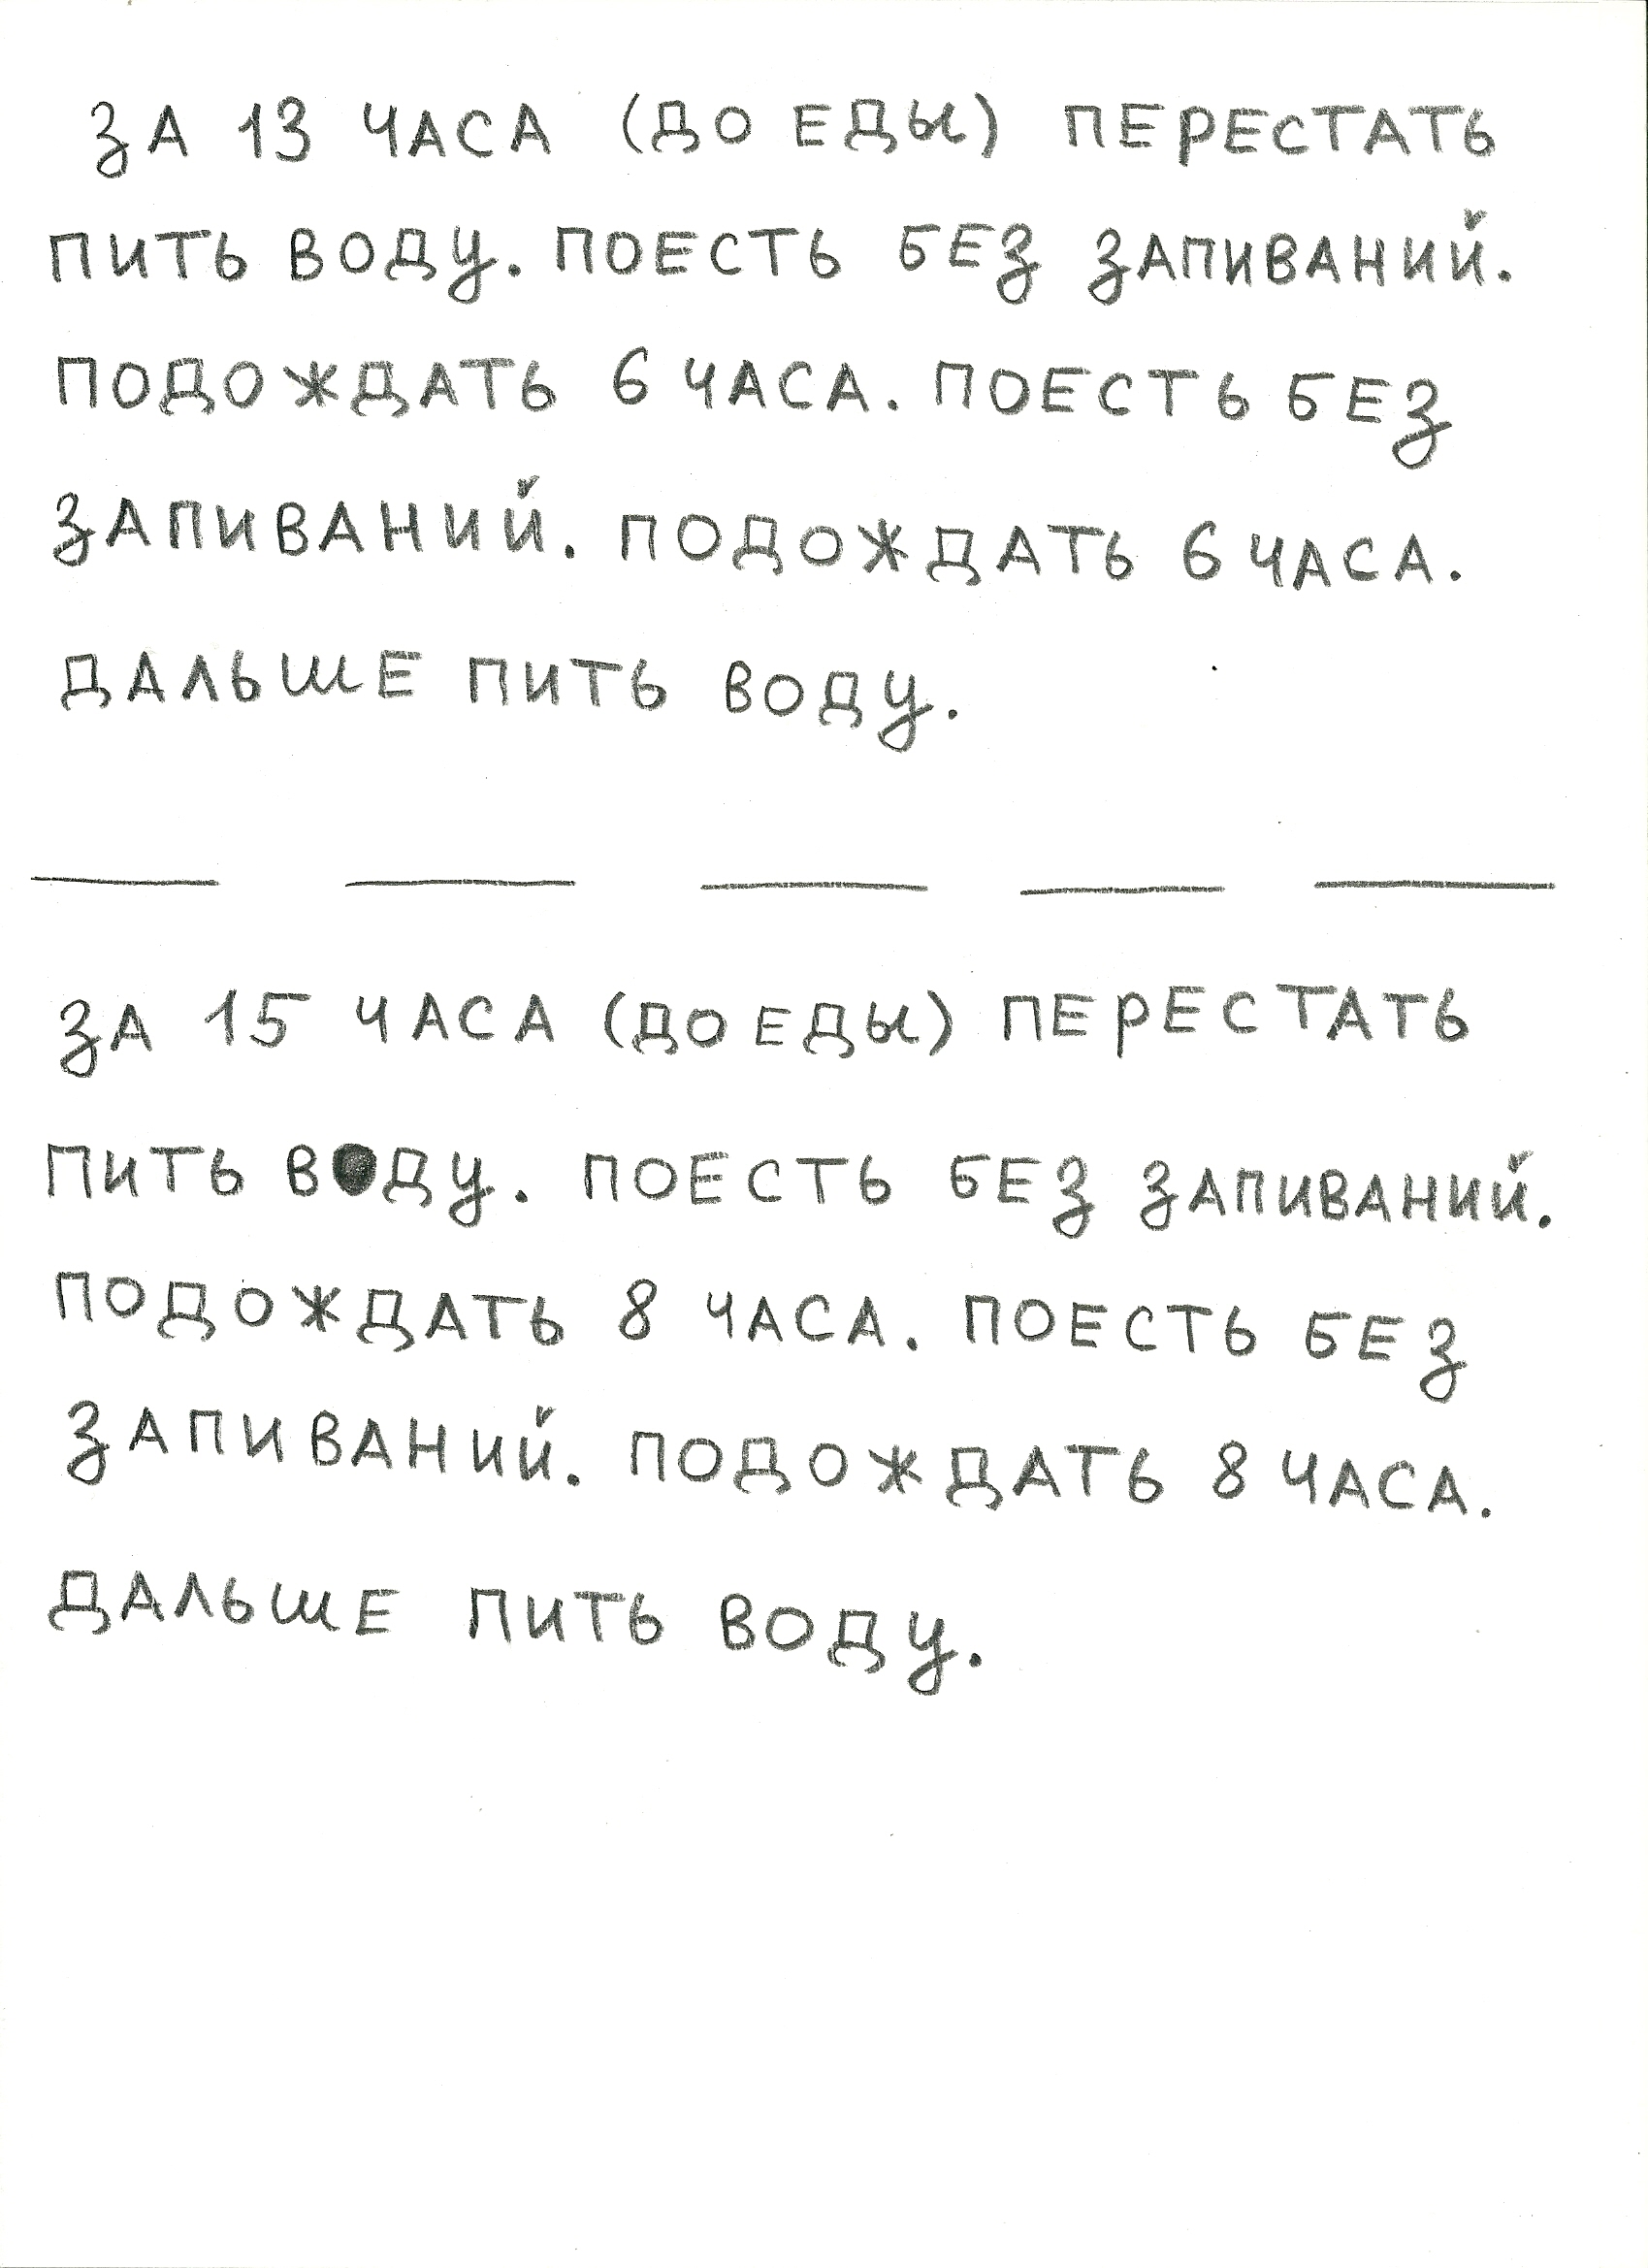 ЗА 13 ЧАСА (ДО ЕДЫ) ПЕРЕСТАТЬ
ПИТЬ ВОДУ. ПОЕСТЬ БЕЗ ЗАПИВАНИЙ.
ПОДОЖДАТЬ 6 ЧАСА. ПОЕСТЬ БЕЗ
ЗАПИВАНИЙ. ПОДОЖДАТЬ 6 ЧАСА.
ДАЛЬШЕ ПИТЬ ВОДУ.
ЗА 15 ЧАСА (ДО ЕДЫ) ПЕРЕСТАТЬ
ПИТЬ ВОДУ. ПОЕСТЬ БЕЗ ЗАПИВАНИЙ.
ПОДОЖДАТЬ 8 ЧАСА. ПОЕСТЬ БЕЗ
ЗАПИВАНИЙ. ПОДОЖДАТЬ 8 ЧАСА.
ДАЛЬШЕ ПИТЬ ВОДУ.